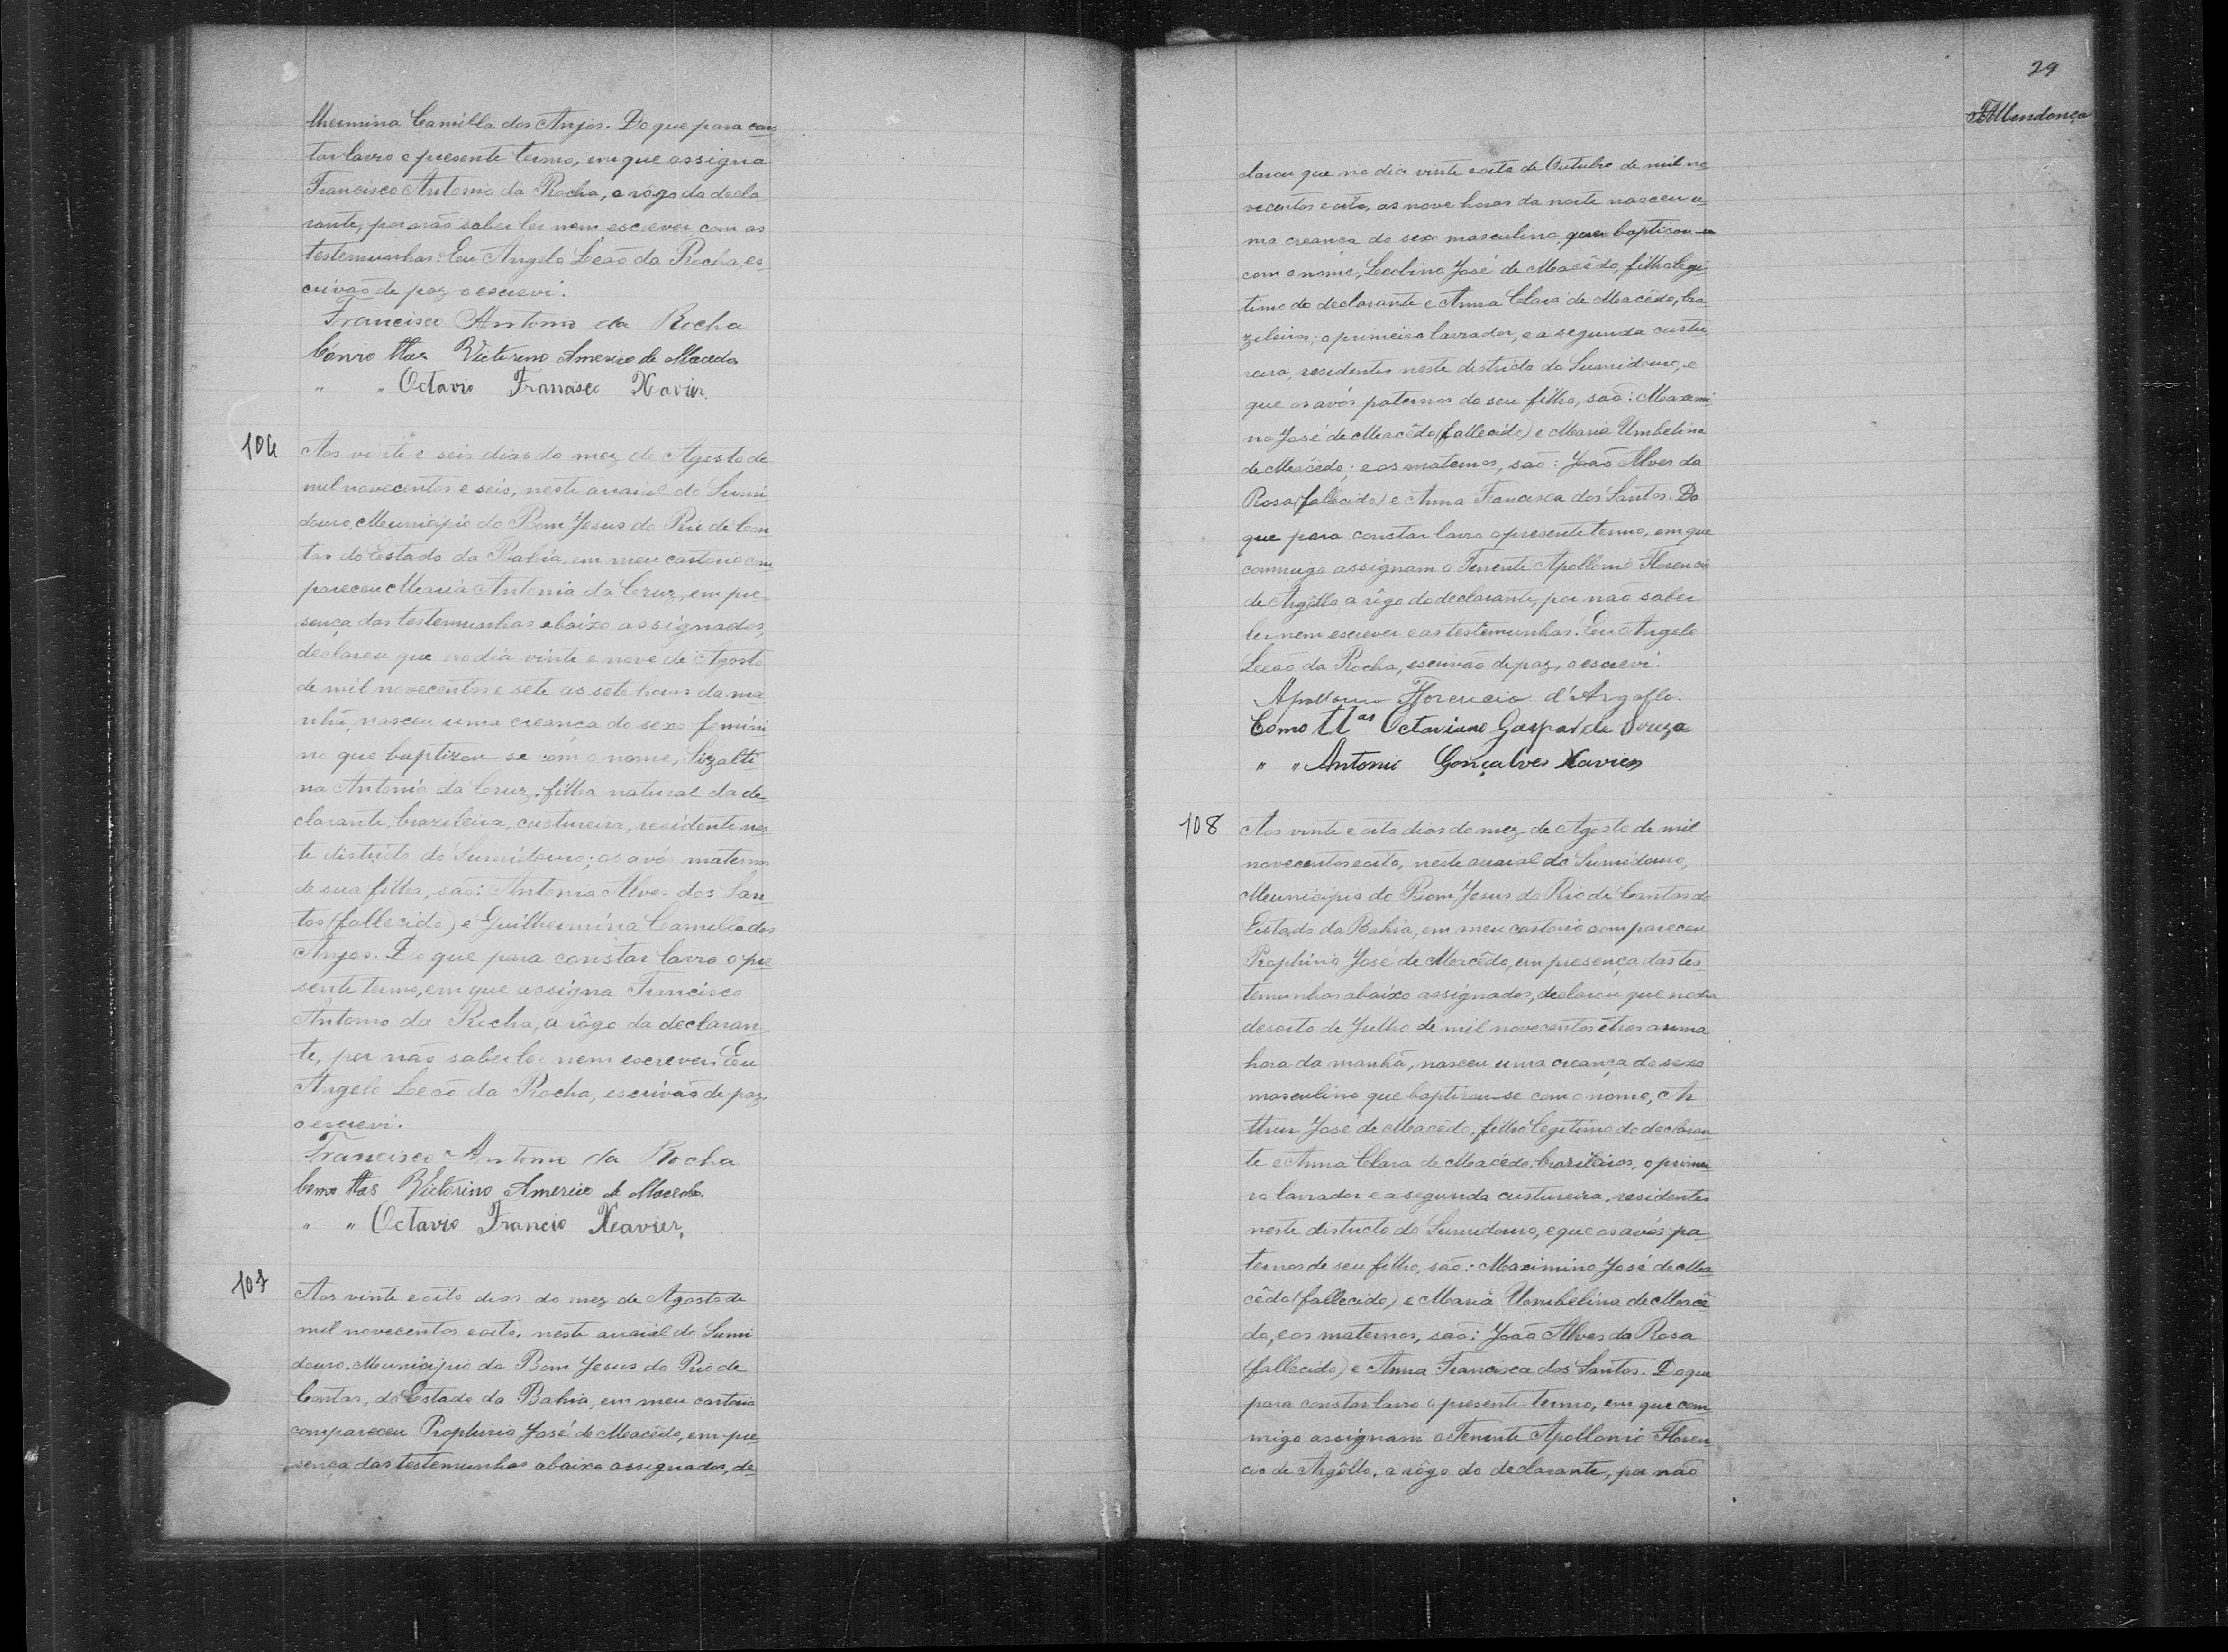 lhermina Camilla dos Anjos. Do que para cons
tar lavro o presente termo, em que assigna
Francisco Antonio da Rocha, a rôgo da decla
rante, por não saber ler nem escrever, com as
testemunhas. Eu Angelo Leão da Rocha, es
crivão de paz o escrevi.
Francisco Antonio da Rocha
Como ttas Victorino Americo de Macedo
" " Octavio Francisco Xavier.
106
Aos vinte e seis dias do mez de Agosto de
mil novecentos e seis, neste arraial do Sumi
douro, Municipio do Bom Jesus do Rio de Con
tas do Estado da Bahia, em meu cartorio com
pareceu Maria Antonia da Cruz, em pre
sença das testemunhas abaixo assignados,
declarou que no dia vinte e nove de Agosto
de mil novecentos e sete as sete horas da ma
nhã, nasceu uma creança do sexo femini
no que baptizou-se com o nome,
na Antonia da Cruz, filha natural da de
clarante, brazileira, custureira, residente nes
te districto do Sumidouro; os avós maternos
de sua filha, são: Antonio Alves dos San
tos (fallecido) e Guilhermina Camilla dos
Anjos. Do que para constar lavro o pre
sente termo, em que assigna Francisco
Antonio da Rocha, a rôgo da declaran
te, por não saber ler nem escrever. Eu
Angelo Leão da Rocha, escrivão de paz,
o escrevi.
Francisco Antonio da Rocha
Como ttas Victorino Americo de Macedo.
" " Octavio Francio Xavier.
107
Aos vinte e oito dias do mez de Agosto de
mil novecentos e oito, neste arraial do Sumi
douro, Municipio do Bom Jesus do Rio de
Contas, do Estado da Bahia, em meu cartorio
compareceu Prophirio José de Macêdo, em pre
sença das testemunhas abaixo assignados, de
29
Mendonça
clarou que no dia vinte e oito de Outubro de mil no
vecentos e oito, as nove horas da noite nasceu u
ma creança do sexo masculino, que baptizou-se
com o nome, Leolino José de Macêdo, filho legi
timo do declarante e Anna Clara de Macêdo, bra
zileiros; o primeiro lavrador, e a segunda custu
reira, residentes neste districto do Sumidouro, e
que os avós paternos do seu filho, são: Maximi
no José de Macêdo (fallecido) e Maria Umbelina
de Macêdo; e os maternos, são: João Alves da
Rosa (fallecido) e Anna Francisca dos Santos. Do
que para constar lavro o presente termo, em que
commigo assignam o Tenente Apollonio Florencio
de Argôllo, a rôgo do declarante, por não saber
ler nem escrever e as testemunhas. Eu Angelo
Leão da Rocha, escrivão de paz, o escrevi.
Apollonio Florencio d'Argollo.
Como ttas Octaviano Gaspar de Souza
" " Antonio Gonçalves Xavier
108
Aos vinte e oito dias do mez de Agosto de mil
novecentos e oito, neste arraial do Sumidouro,
Municipio do Bom Jesus do Rio de Contas do
Estado da Bahia, em meu cartorio compareceu
Prophirio José de Macêdo, em presença das tes
temunhas abaixo assignados, declarou que no dia
desoito de Julho de mil novecentos e tres a uma
hora da manhã, nasceu uma creança do sexo
masculino que baptizou-se com o nome, Ar
thur José de Macêdo, filho legitimo do declaran
te e Anna Clara de Macêdo, brazileiros, o primei
ro lavrador e a segunda custureira, residentes
neste districto do Sumidouro, e que os avós pa
ternos de seu filho, são: Maximino José de Ma
cêdo (fallecido) e Maria Umbelina de Macê
do, e os maternos, são: João Alves da Rosa
(fallecido) e Anna Francisca dos Santos. Do que
para constar lavro o presente termo, em que com
migo assignam o Tenente Apollonio Floren
cio de Argôllo, a rôgo do declarante, por não